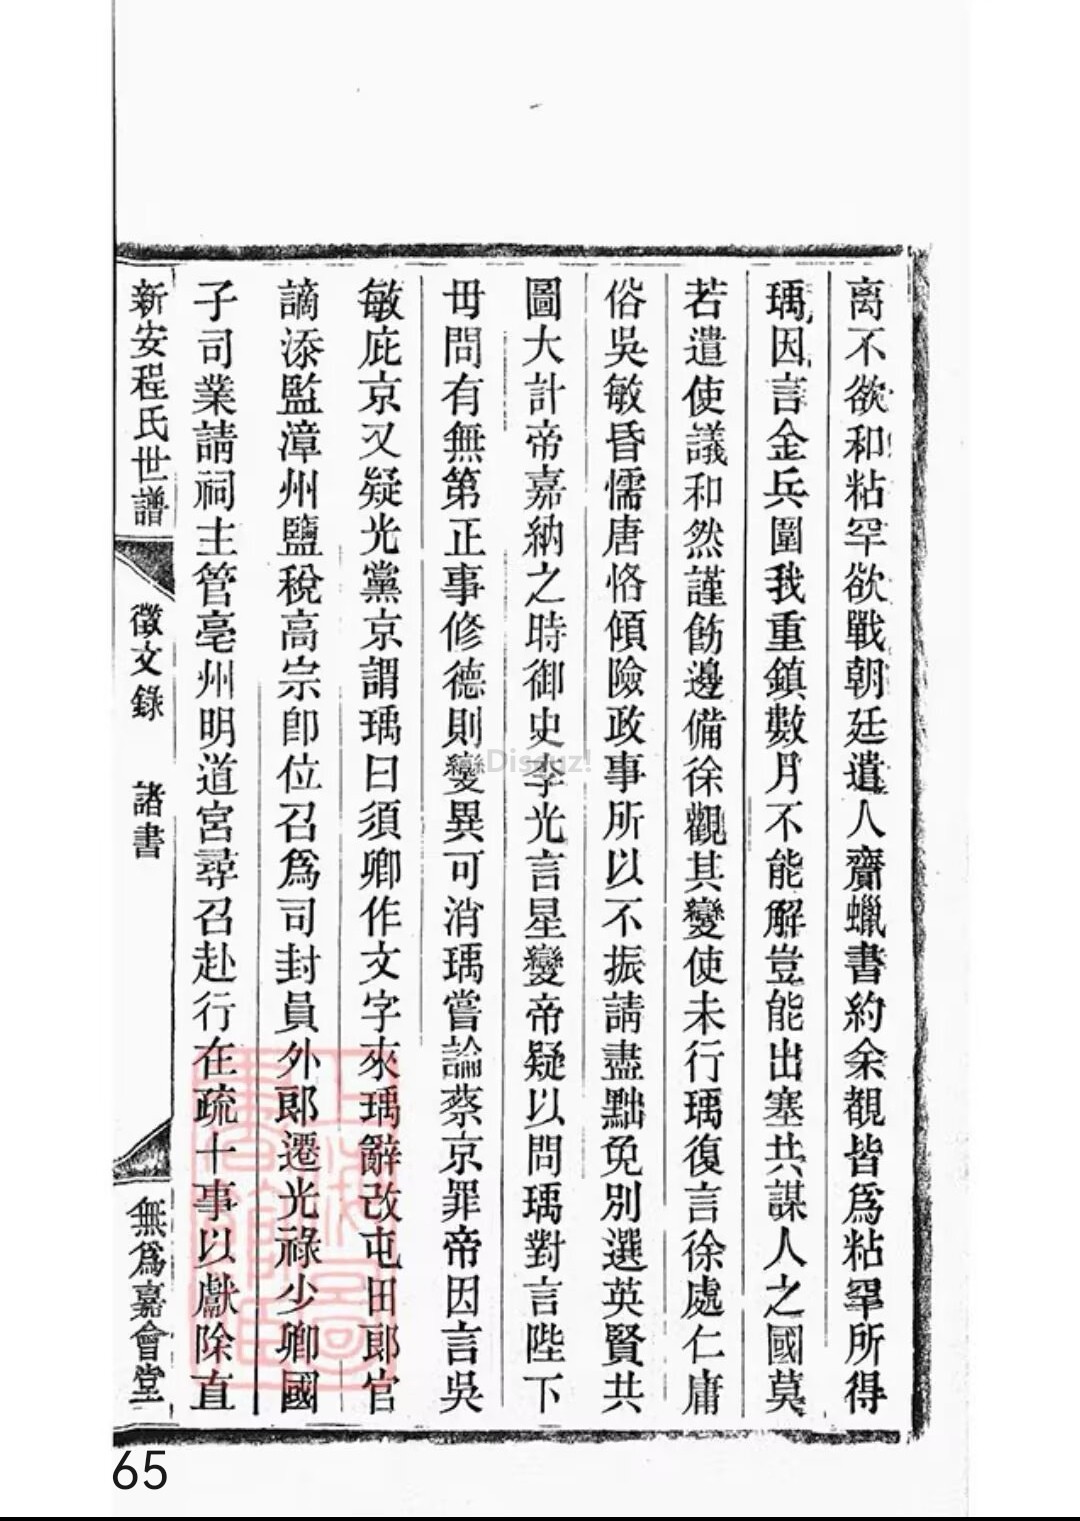 离不欲和粘罕欲戰朝廷遣人齎蠟書約余覩皆爲粘罕所得
瑀因言金兵圍我重鎮數月不能解豈能出塞共謀人之國莫
若遣使議和然謹飭邊備徐觀其變使未行瑀復言徐處仁庸
俗吳敏昏懦唐恪傾險政事所以不振請盡黜免別選英賢共
圖大計帝嘉納之時御史李光言星變帝疑以問瑀對言陛下
毋問有無第正事修德則變異可消瑀嘗論蔡京罪帝因言吳
敏庇京又疑光黨京謂瑀曰須卿作文字來瑀辭改屯田郎官
謫添監漳州鹽稅高宗卽位召爲司封員外郎遷光祿少卿國
子司業請祠主管亳州明道宮尋召赴行在疏十事以獻除直
新安程氏世譜 徵文錄 諸書 無爲嘉會堂
Discuz!
65